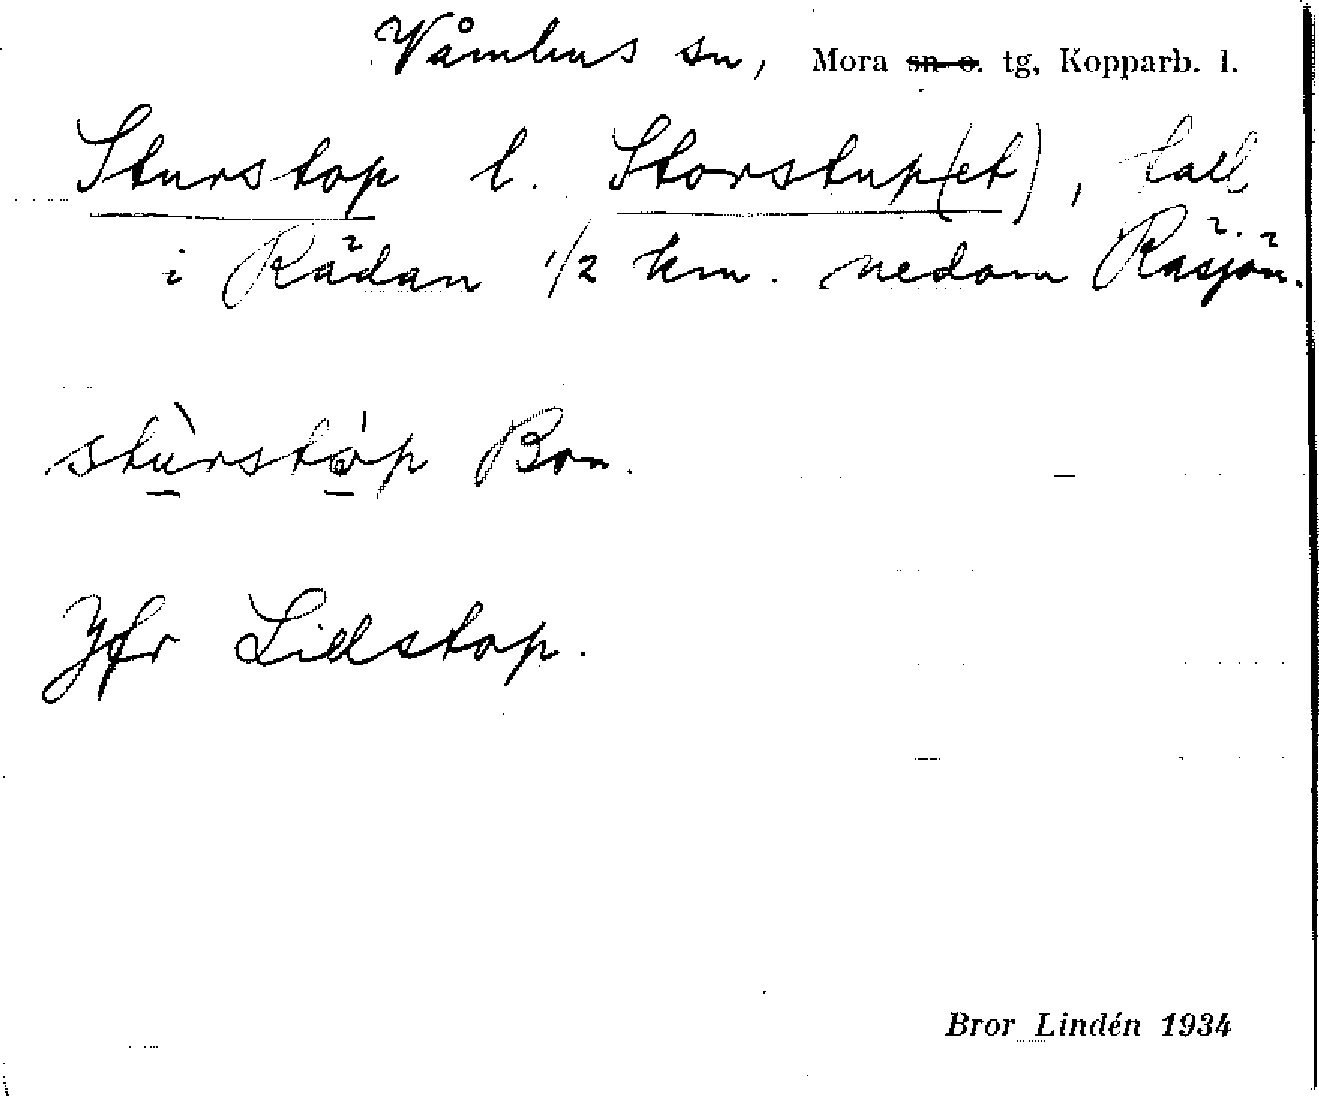 Våmhus sn, Mora sn o. tg, Kopparb. l.
Sturstop l. Storstup(et), fall
i Rädan 1/2 km. nedom Räsjön.
stùrstǿp Bon.
Jfr Lidstop.
Bror Lindén 1934